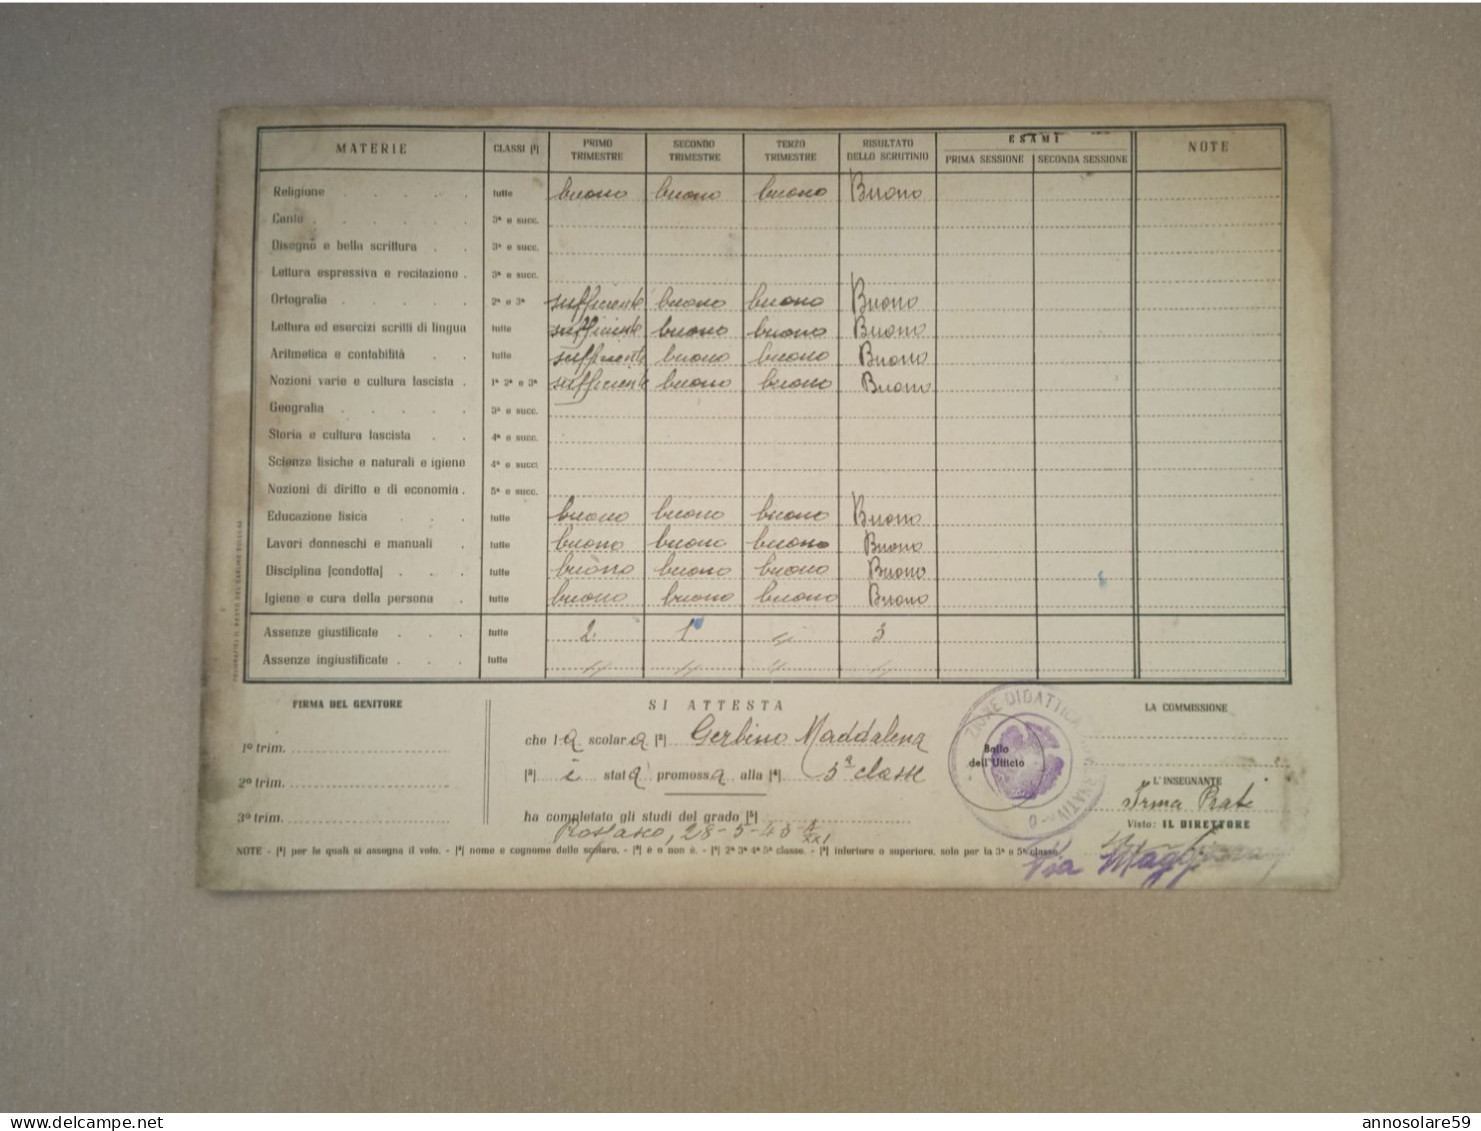 MATERIE CLASSI [¹] PRIMO TRIMESTRE SECONDO TRIMESTRE TERZO TRIMESTRE RISULTATO DELLO SCRUTINIO ESAMI PRIMA SESSIONE SECONDA SESSIONE NOTE
Religione tutte buono buono buono Buono
Canto 3ª e succ.
Disegno e bella scrittura 3ª e succ.
Lettura espressiva e recitazione 3ª e succ.
Ortografia 2ª e 3ª sufficiente buono buono Buono
Lettura ed esercizi scritti di lingua tutte sufficiente buono buono Buono
Aritmetica e contabilità tutte sufficiente buono buono Buono
Nozioni varie e cultura fascista 1ª 2ª e 3ª sufficiente buono buono Buono
Geografia 3ª e succ.
Storia e cultura fascista 4ª e succ.
Scienze fisiche e naturali e igiene 4ª e succ.
Nozioni di diritto e di economia 5ª e succ.
Educazione fisica tutte buono buono buono Buono
Lavori donneschi e manuali tutte buono buono buono Buono
Disciplina [condotta] tutte buono buono buono Buono
Igiene e cura della persona tutte buono buono buono Buono
Assenze giustificate tutte 2 1 3
Assenze ingiustificate tutte
FIRMA DEL GENITORE
1º trim.
2º trim.
3º trim.
SI ATTESTA
che la scolara [²] Gerbino Maddalena
[³] è stata promossa alla [⁴] 3ª classe
ha completato gli studi del grado [⁵]
28-5-43 XXI
Bollo dell'Ufficio
LA COMMISSIONE
L'INSEGNANTE
Irma Prati
Visto: IL DIRETTORE
NOTE - [¹] per le quali si assegna il voto. - [²] nome e cognome dello scolaro. - [³] è o non è. - [⁴] 2ª 3ª 4ª 5ª classe. - [⁵] inferiore o superiore, solo per la 3ª e 5ª classe.
Via
www.delcampe.net
annosolare59